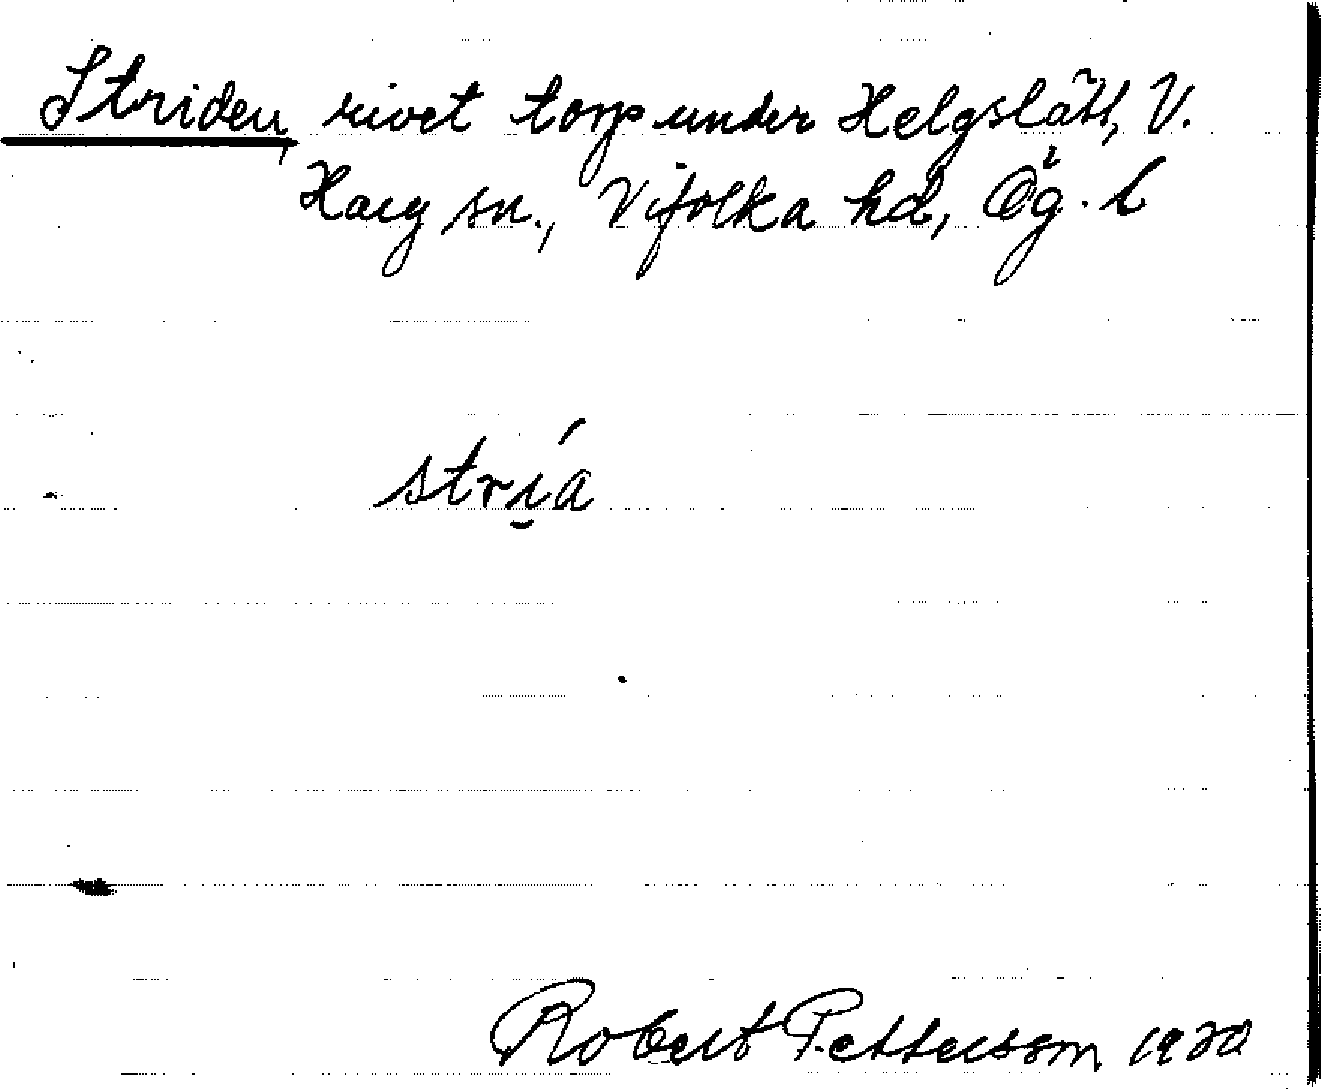 Striden, rivet torp under Helgslätt, V.
Harg sn., Vifolka hd, Ög. l
strị́a
Robert Pettersson 1930